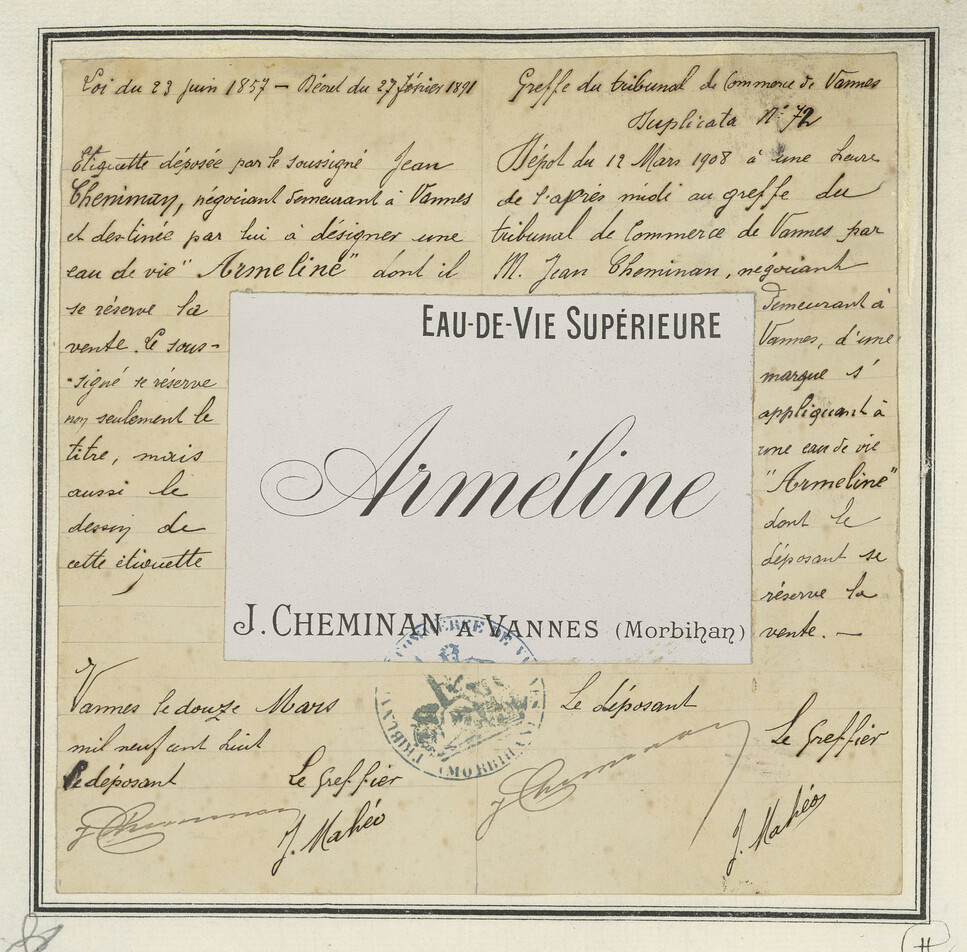 Loi du 23 juin 1857 – Décret du 27 février 1891
Etiquette déposée par le soussigné Jean
Cheminan, négociant demeurant à Vannes
et destinée par lui à désigner une
eau de vie "Armeline" dont il
se réserve la
vente. Le sous-
-signé se réserve
non seulement le
titre, mais
aussi le
dessin de
cette étiquette
Vannes le douze Mars
mil neuf cent huit
Le déposant
Le Greffier
J. Mahéo
Greffe du tribunal de Commerce de Vannes
Duplicata N° 72
Dépot du 12 Mars 1908 à une heure
de l'après midi au greffe du
tribunal de Commerce de Vannes par
M. Jean Cheminan, négociant
demeurant à
Vannes, d'une
marque s'
appliquant à
une eau de vie
"Armeline"
dont le
déposant se
réserve la
vente. —
Le déposant
Le Greffier
J. Cheminan
J. Mahéo
EAU-DE-VIE SUPÉRIEURE
Arméline
J. CHEMINAN A VANNES (Morbihan)
TRIBUNAL DE COMMERCE DE VANNES
(MORBIHAN)